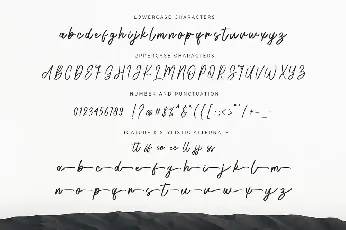 LOWERCASE CHARACTERS
abcdefghijklmnopqrstuvwxyz
UPPERCASE CHARACTERS
ABCDEFGHIJKLMNOPQRSTUVWXYZ
NUMBER AND PUNCTUATION
0123456789
LIGATURE & STYLISTIC ALTERNATE
a b c d e f g h i j k l m
n o p q r s t u v w x y z